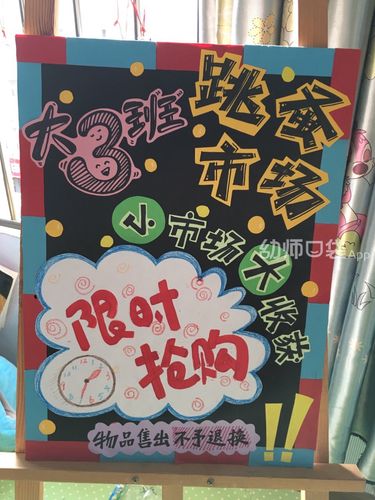 大3班
跳蚤
市场
小市场大收获
限时
抢购
物品售出不予退换!!
幼师口袋App